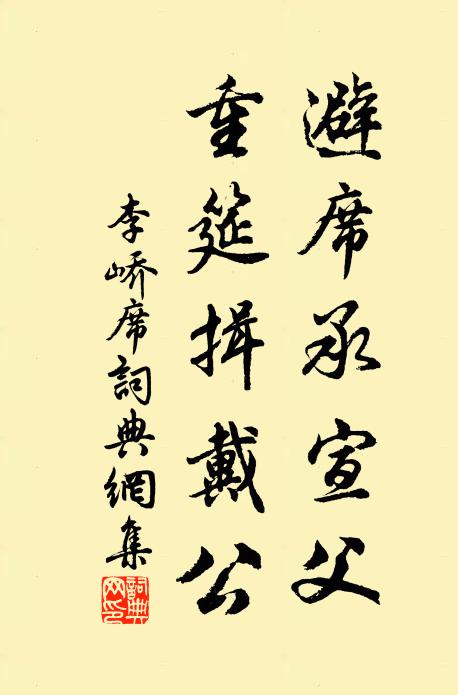 避席承宣父
重筵揖戴公
李嶠席詞典網集
詞典網印